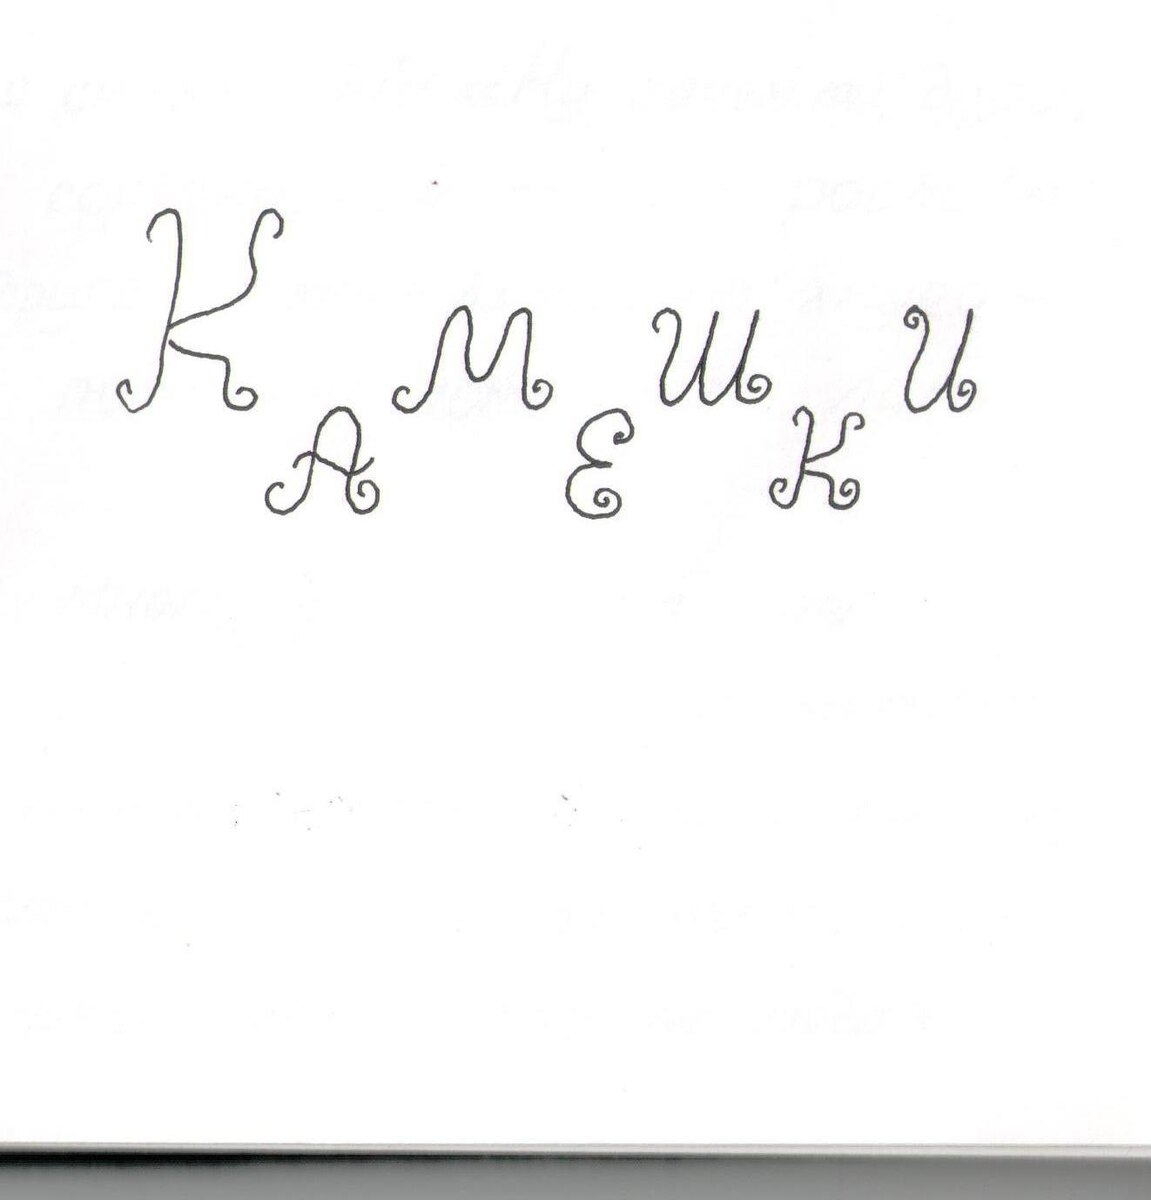 КАМЕШКИ